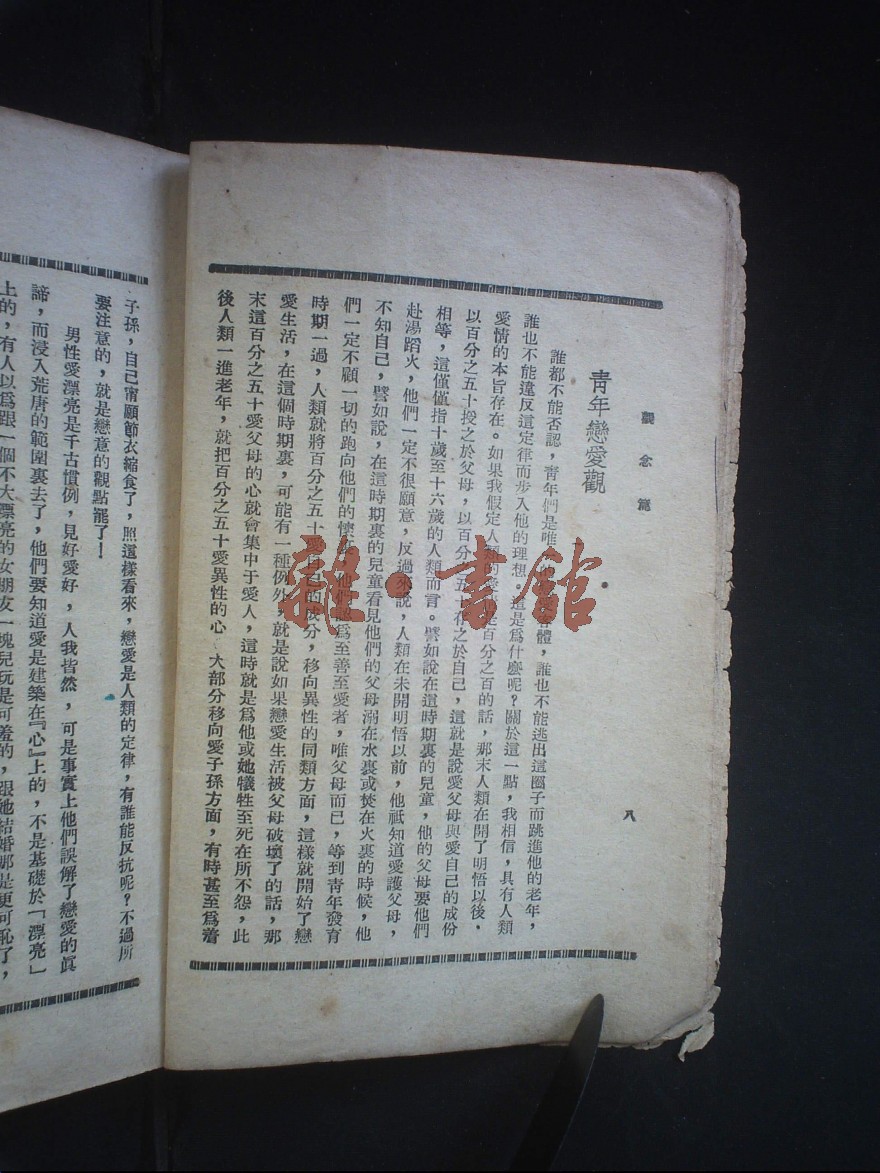 觀念篇
八
青年戀愛觀
誰都不能否認,靑年們是唯體,誰也不能逃出這圈子而跳進他的老年,
誰也不能違反這定律而步入他的理想。這是爲什麽呢?關於這一點,我相信,具有人類
愛情的本旨存在。如果我假定人類的是百分之百的話,那末人類在開了明悟以後,
以百分之五十授之於父母,以百分之五十存之於自己,這就是說愛父母與愛自己的成份
相等,這僅僅指十歲至十六歲的人類而言。譬如說在這時期裏的兒童,他的父母要他們
赴湯蹈火,他們一定不很願意,反過來說,人類在未開明悟以前,他祇知道愛護父母,
不知自己,譬如說,在這時期裏的兒童看見他們的父母溺在水裏或焚在火裏的時候,他
們一定不顧一切的跑向他們的懷爲至善至愛者,唯父母而已,等到靑年發育
時期一過,人類就將百分之五十愛自己的成分,移向異性的同類方面,這樣就開始了戀
愛生活,在這個時期裏,可能有一種例外就是說如果戀愛生活被父母破壞了的話,那
末這百分之五十愛父母的心就會集中于愛人,這時就是爲他或她犧牲至死在所不怨,此
後人類一進老年,就把百分之五十愛異性的心 大部分移向愛子孫方面,有時甚至爲着
子孫,自己甯願節衣縮食了,照這樣看來,戀愛是人類的定律,有誰能反抗呢?不過所
要注意的,就是戀意的觀點罷了!
男性愛漂亮是千古慣例,見好愛好,人我皆然,可是事實上他們誤解了戀愛的眞
諦,而浸入荒唐的範圍裏去了,他們要知道愛是建築在『心』上的,不是基礎於「漂亮」
上的,有人以爲跟一個不大漂亮的女朋友一塊兒玩是可羞的,跟她結婚那是更可恥了,
雜·書館